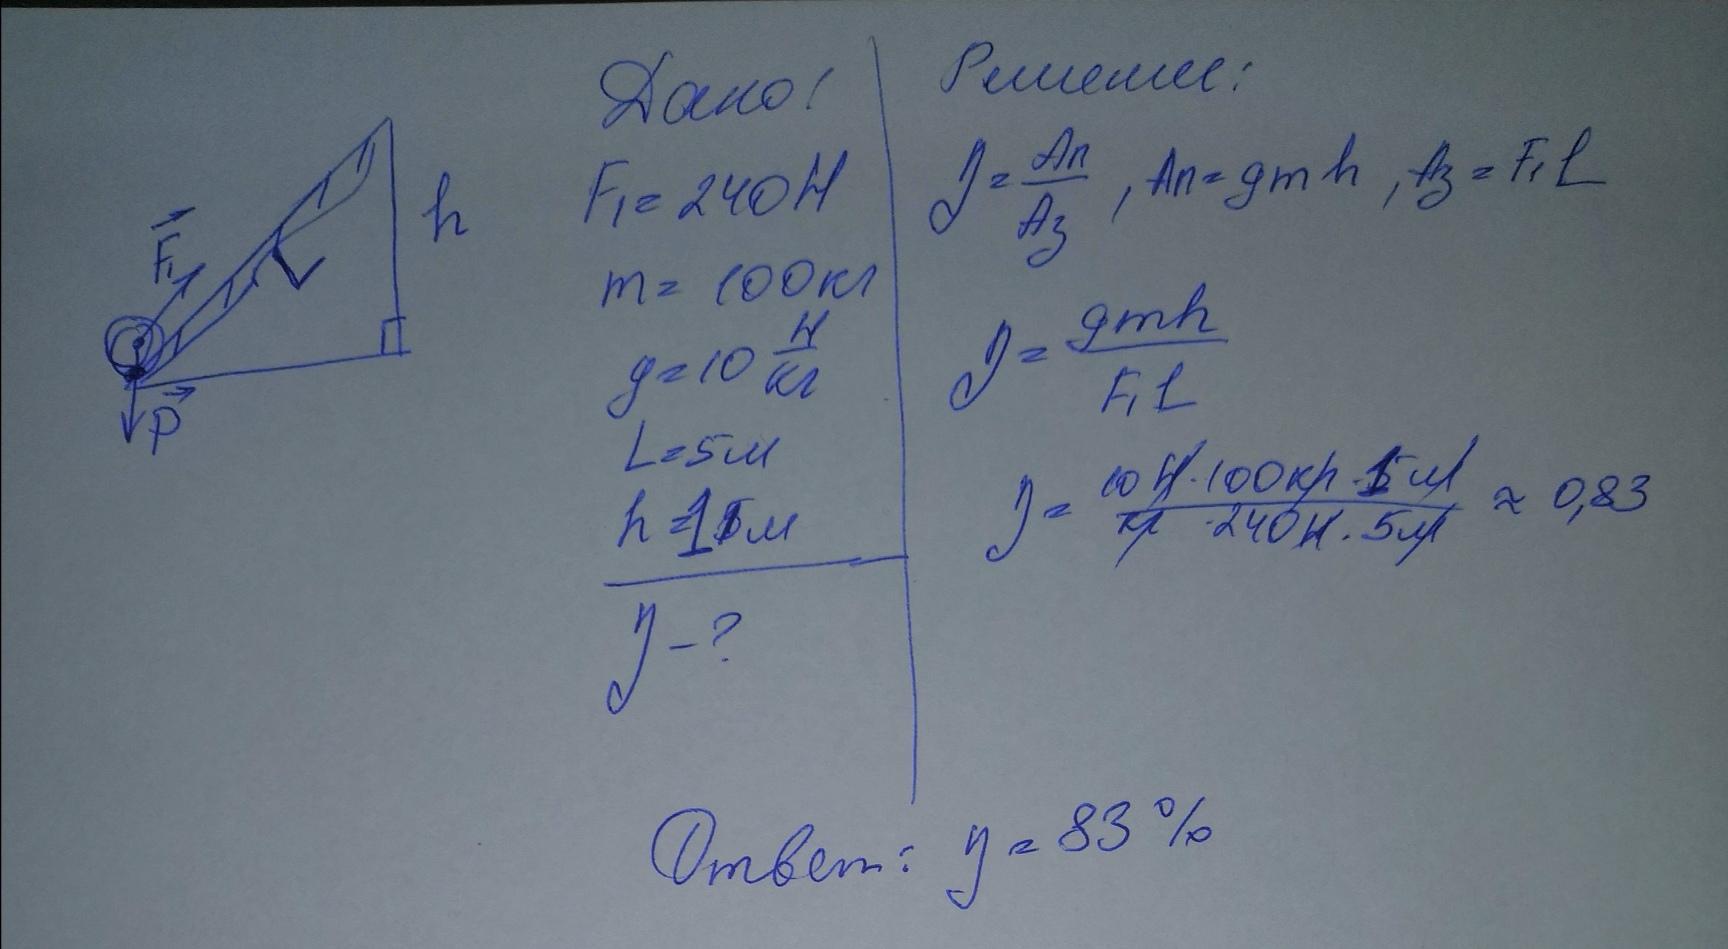 Дано:
F₁ = 240 Н
m = 100 кг
g = 10 Н/кг
L = 5 м
h = 1 м
η - ?
Решение:
η = Aп/Aз, Aп = gmh, Aз = F₁L
η = gmh/F₁L
η = 10 Н · 100 кг · 1 м / кг · 240 Н · 5 м ≈ 0,83
h
F₁
L
P
Ответ: η = 83 %